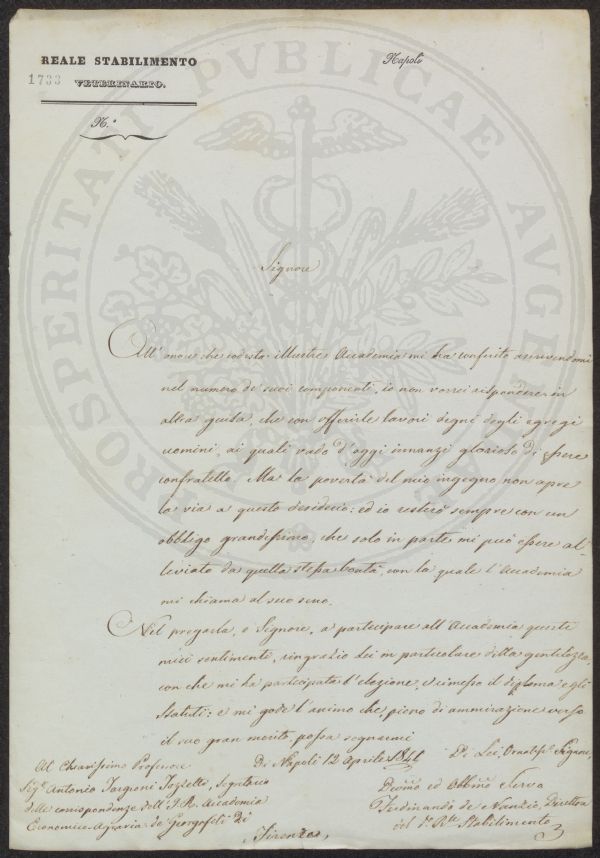 REALE STABILIMENTO
Napoli
1733
VETERINARIO.
N.º
PROSPERITATI PVBLICAE AVGENDAE
Signore
All' onore che codesta illustre Accademia mi ha conferito ascrivendomi
nel numero de' suoi componenti, io non vorrei rispondere in
altra guisa, che con offerirle lavori degni degli egregi
uomini, ai quali vado d'oggi innanzi glorioso di essere
confratello. Ma la povertà del mio ingegno non apre
la via a questo desiderio: ed io resterò sempre con un
obbligo grandissimo, che solo in parte mi può essere al-
leviato da quella stessa bontà, con la quale l'Accademia
mi chiama al suo seno.
Nel pregarla, o Signore, a partecipare all'Accademia questi
miei sentimenti, ringrazio Lei in particolare della gentilezza,
con che mi ha participata l'elezione, e rimesso il diploma e gli
Statuti: e mi gode l'animo che, pieno di ammirazione verso
il suo gran merito, possa segnarmi
Di Napoli 12 Aprile
Di Lei, Ornatiss. Signore,
Al Chiarissimo Professore
Sig.r Antonio Targioni Tozzetti, Segretario
delle corrispondenze dell'I. R. Accademia
Economico-Agraria de' Georgofili di
Firenze,
Devmo ed Obblmo Servo
Ferdinando de Nanzio, Direttore
del Stabilimento